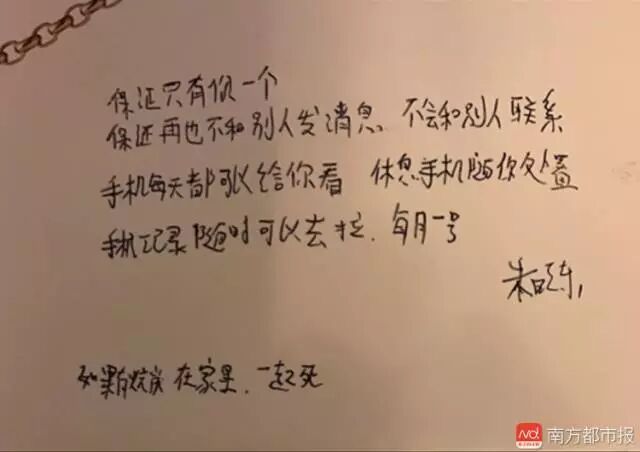 保证只有你一个
保证再也不和别人发消息 不会和别人联系
手机每天都可以给你看 休息手机随你处置
手机记录随时可以去拉. 每月一号
朱晓东
如果有 在家里. 一起死
南方都市报